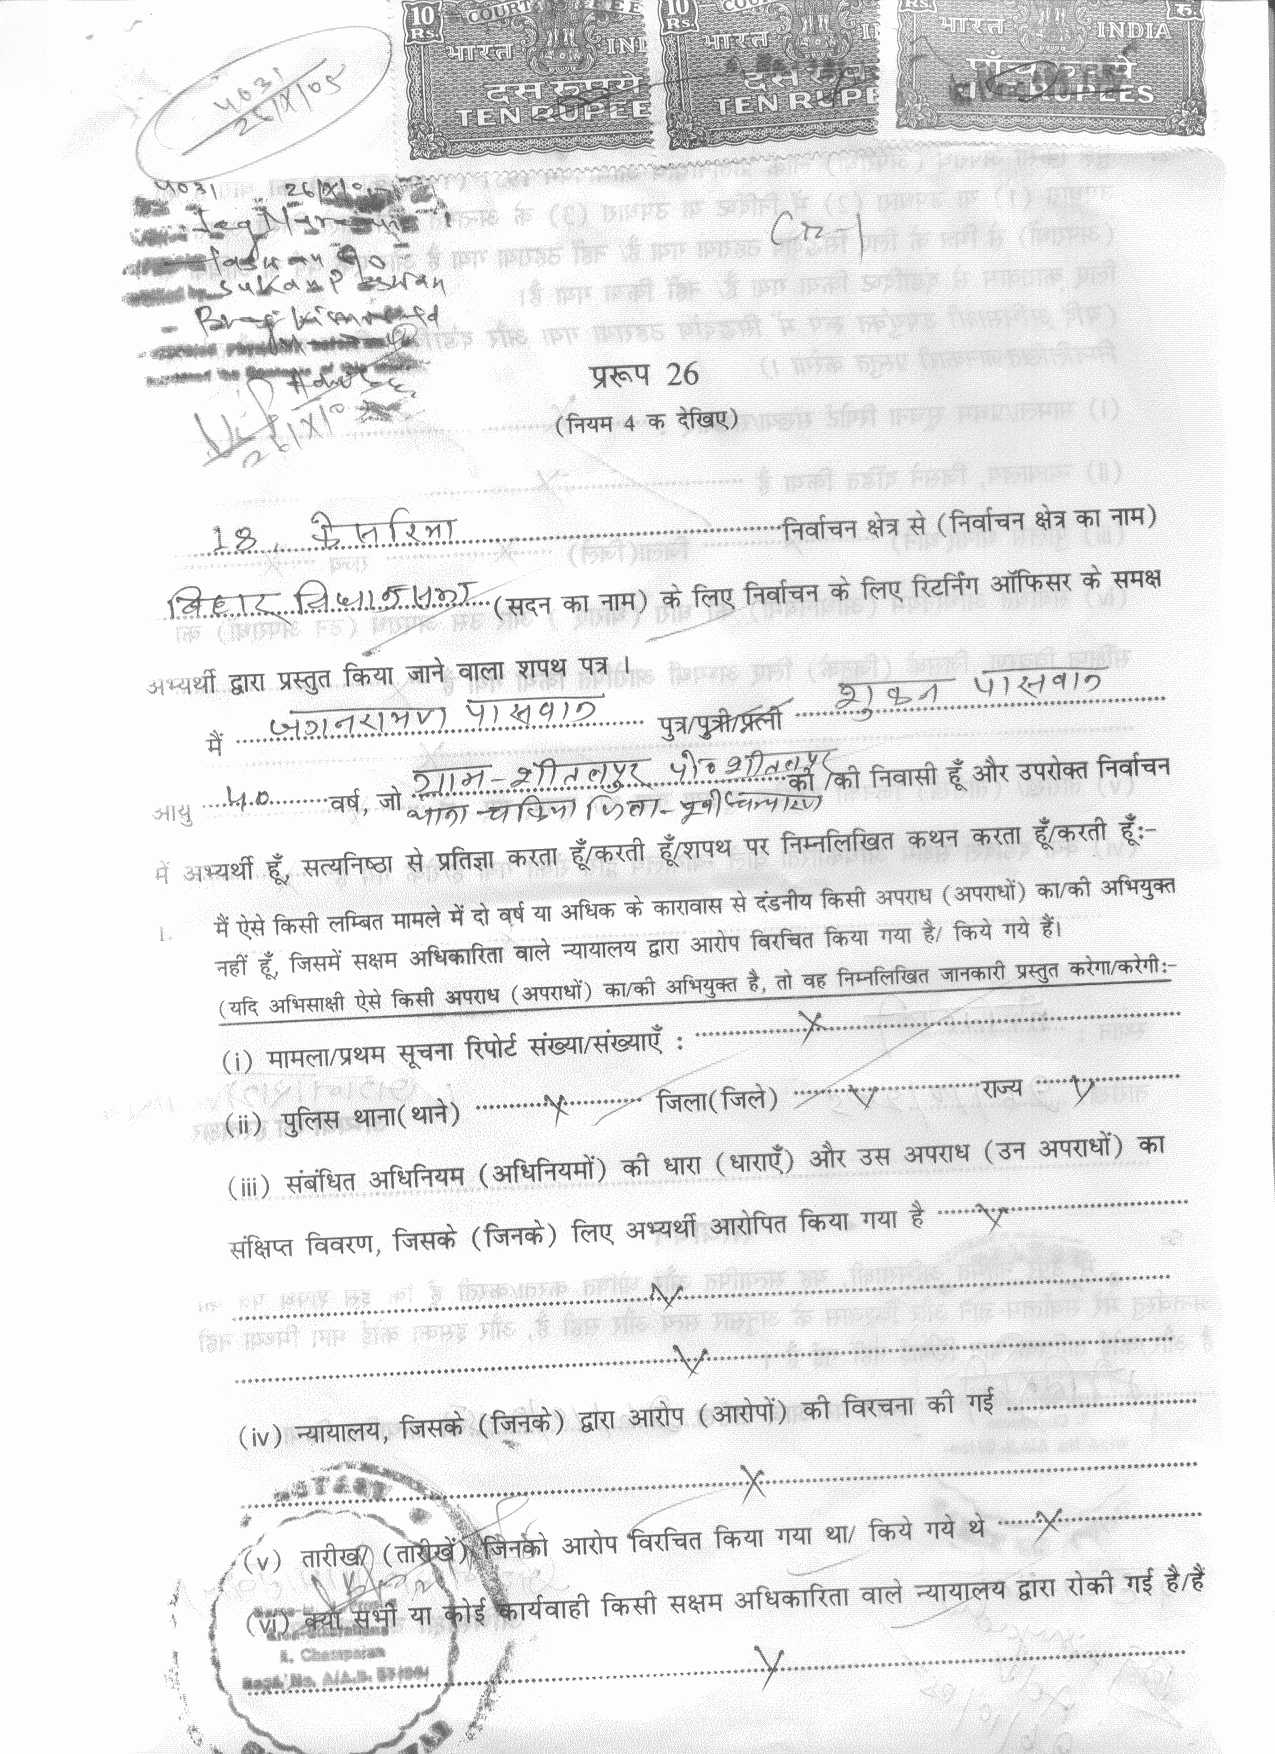 10 Rs. COURT FEE भारत INDIA दस रुपये TEN RUPEES
10 Rs. भारत दस रुपये TEN RUPEES
Rs. रु. भारत INDIA RUPEES
4031
26/X/05
4031 26/X/0
Paswan S/o
प्ररूप 26
(नियम 4 क देखिए)
18, केसरिया निर्वाचन क्षेत्र से (निर्वाचन क्षेत्र का नाम)
बिहार विधान सभा (सदन का नाम) के लिए निर्वाचन के लिए रिटर्निंग ऑफिसर के समक्ष
अभ्यर्थी द्वारा प्रस्तुत किया जाने वाला शपथ पत्र ।
मैं जगनरायण पासवान पुत्र/पुत्री/पत्नी शुकन पासवान
आयु 40 वर्ष, जो ग्राम-शीतलपुर पो० शीतलपुर का /की निवासी हूँ और उपरोक्त निर्वाचन
थाना-चकिया जिला-पूर्वी चम्पारण
में अभ्यर्थी हूँ, सत्यनिष्ठा से प्रतिज्ञा करता हूँ/करती हूँ/शपथ पर निम्नलिखित कथन करता हूँ/करती हूँ:-
1. मैं ऐसे किसी लम्बित मामले में दो वर्ष या अधिक के कारावास से दंडनीय किसी अपराध (अपराधों) का/की अभियुक्त
नहीं हूँ, जिसमें सक्षम अधिकारिता वाले न्यायालय द्वारा आरोप विरचित किया गया है/ किये गये हैं।
(यदि अभिसाक्षी ऐसे किसी अपराध (अपराधों) का/की अभियुक्त है, तो वह निम्नलिखित जानकारी प्रस्तुत करेगा/करेगी:-
(i) मामला/प्रथम सूचना रिपोर्ट संख्या/संख्याएँ : X
(ii) पुलिस थाना(थाने) X जिला(जिले) X राज्य X
(iii) संबंधित अधिनियम (अधिनियमों) की धारा (धाराएँ) और उस अपराध (उन अपराधों) का
संक्षिप्त विवरण, जिसके (जिनके) लिए अभ्यर्थी आरोपित किया गया है X
X
X
(iv) न्यायालय, जिसके (जिनके) द्वारा आरोप (आरोपों) की विरचना की गई
X
(v) तारीख/ (तारीखें) जिनको आरोप विरचित किया गया था/ किये गये थे X
(vi) क्या सभी या कोई कार्यवाही किसी सक्षम अधिकारिता वाले न्यायालय द्वारा रोकी गई है/हैं
X
NOTARY
E. Champaran